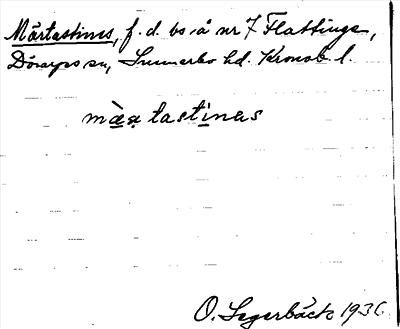 Mårtastines, f. d. bs å nr 7 Flattinge,
Dörarps sn, Sunnerbo hd. Kronob. l.
màạtastinẹs
O. Segerbäck 1936